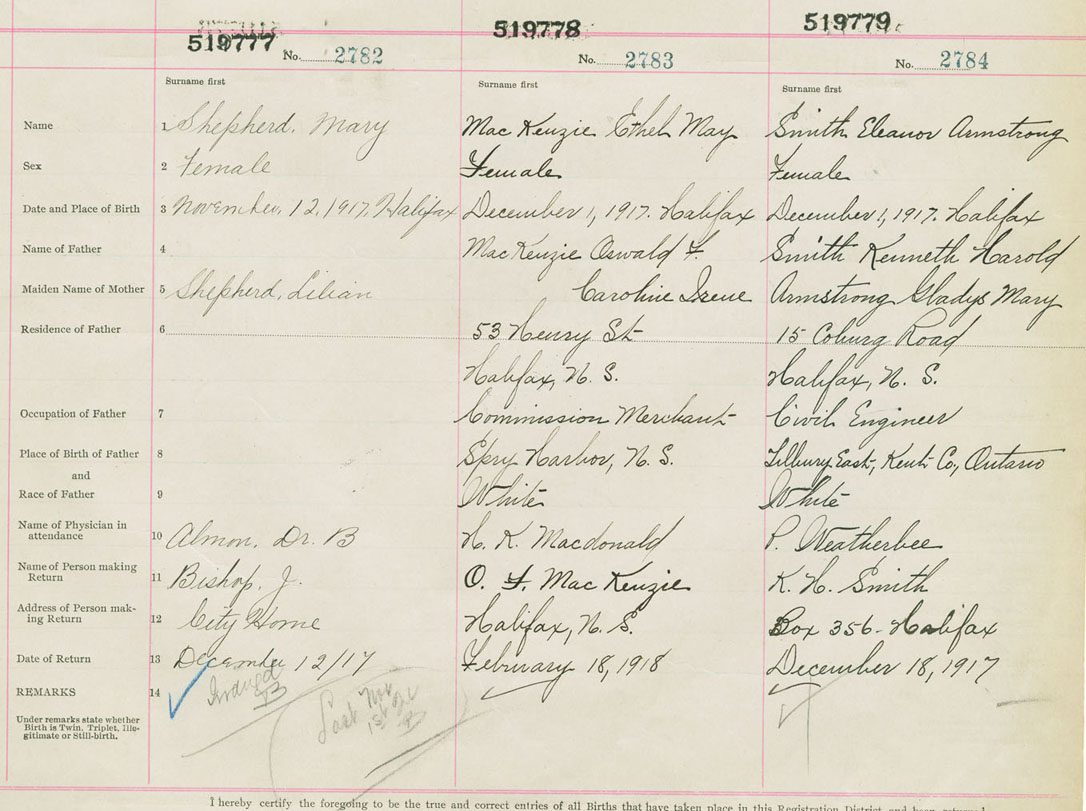 519777 519778 519779
No. 2782 No. 2783 No. 2784
Surname first Surname first Surname first
Name 1 Shepherd, Mary Mac Kenzie Ethel May Smith Eleanor Armstrong
Sex 2 Female Female Female
Date and Place of Birth 3 November, 12, 1917, Halifax December 1, 1917. Halifax December 1, 1917. Halifax
Name of Father 4 MacKenzie Oswald F. Smith Kenneth Harold
Maiden Name of Mother 5 Shepherd, Lilian Caroline Irene Armstrong Gladys Mary
Residence of Father 6 53 Henry St 15 Coburg Road
Halifax, N. S. Halifax, N. S.
Occupation of Father 7 Commission Merchant Civil Engineer
Place of Birth of Father 8 Spry Harbor, N. S. Tilbury East, Kent Co., Ontario
and
Race of Father 9 White White
Name of Physician in
attendance 10 Almon, Dr. B H. K. Macdonald P. Weatherbee
Name of Person making
Return 11 Bishop, J. O. F. Mac Kenzie K. H. Smith
Address of Person mak-
ing Return 12 City Home Halifax, N. S. Box 356 - Halifax
Date of Return 13 December 12/17 February 18, 1918 December 18, 1917
REMARKS 14
Under remarks state whether
Birth is Twin, Triplet, Ille-
gitimate or Still-birth.
I hereby certify the foregoing to be the true and correct entries of all Births that have taken place in this Registration District and been returned